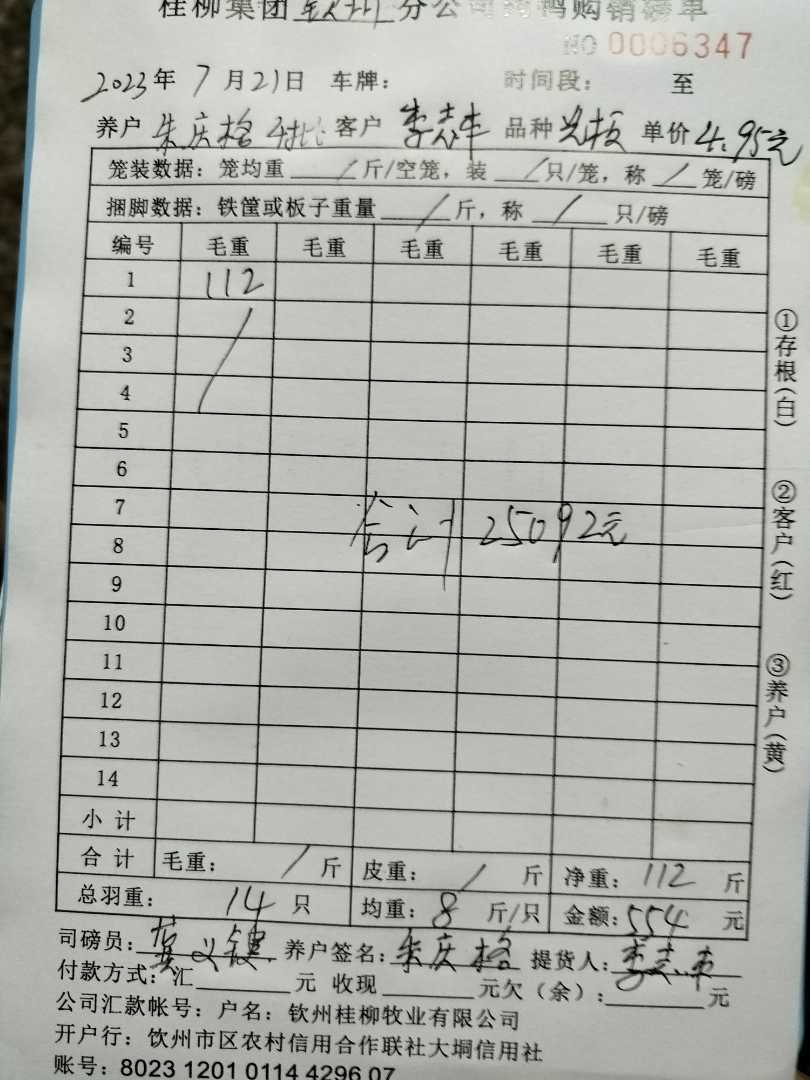 桂柳集团钦州分公司肉鸭购销磅单
NO 0006347
2023年7月21日 车牌： 时间段： 至
养户 朱庆格 客户 李志丰 品种 单价4.95元
笼装数据：笼均重 / 斤/空笼，装 / 只/笼，称 / 笼/磅
捆脚数据：铁筐或板子重量 / 斤，称 / 只/磅
编号 毛重 毛重 毛重 毛重 毛重 毛重
1 112
2
3
4
5
6
7
合计 25092元
8
9
10
11
12
13
14
小计
合计 毛重： / 斤 皮重： / 斤 净重：112 斤
总羽重： 14 只 均重：8 斤/只 金额：554 元
司磅员： 养户签名：朱庆格 提货人：李志丰
付款方式：汇 元 收现 元欠（余）： 元
公司汇款帐号：户名：钦州桂柳牧业有限公司
开户行：钦州市区农村信用合作联社大垌信用社
账号：8023 1201 0114 4296 07
①存根（白）
②客户（红）
③养户（黄）